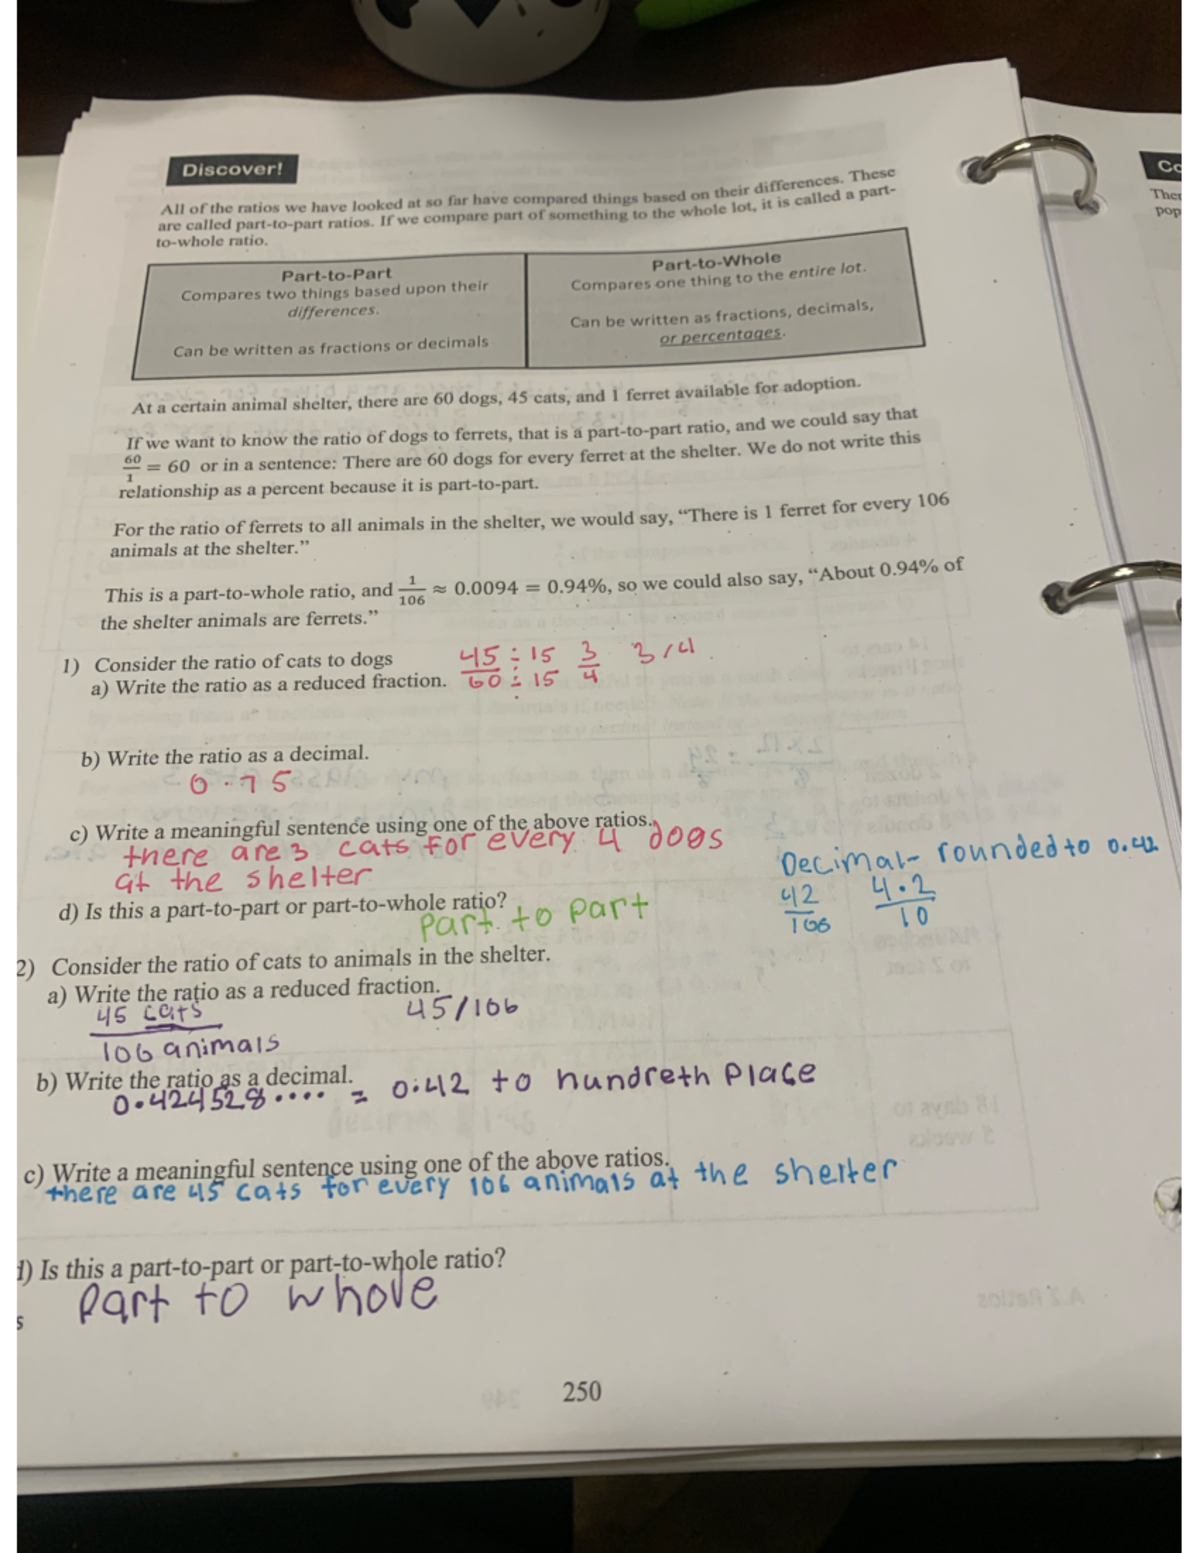 Discover!
Co
Ther
pop
All of the ratios we have looked at so far have compared things based on their differences. These
are called part-to-part ratios. If we compare part of something to the whole lot, it is called a part-
to-whole ratio.
Part-to-Part
Compares two things based upon their
differences.
Can be written as fractions or decimals
Part-to-Whole
Compares one thing to the entire lot.
Can be written as fractions, decimals,
or percentages.
At a certain animal shelter, there are 60 dogs, 45 cats, and 1 ferret available for adoption.
If we want to know the ratio of dogs to ferrets, that is a part-to-part ratio, and we could say that
60/1 = 60 or in a sentence: There are 60 dogs for every ferret at the shelter. We do not write this
relationship as a percent because it is part-to-part.
For the ratio of ferrets to all animals in the shelter, we would say, “There is 1 ferret for every 106
animals at the shelter.”
This is a part-to-whole ratio, and 1/106 ≈ 0.0094 = 0.94%, so we could also say, “About 0.94% of
the shelter animals are ferrets.”
1) Consider the ratio of cats to dogs
a) Write the ratio as a reduced fraction.
45 ÷ 15 3 3/4
60 ÷ 15 4
b) Write the ratio as a decimal.
0.75
c) Write a meaningful sentence using one of the above ratios.
there are 3 cats for every 4 dogs
at the shelter
d) Is this a part-to-part or part-to-whole ratio?
part to part
Decimal- rounded to 0.42
42 4.2
100 10
2) Consider the ratio of cats to animals in the shelter.
a) Write the ratio as a reduced fraction.
45 cats 45/106
106 animals
b) Write the ratio as a decimal.
0.424528.... = 0.42 to hundreth Place
c) Write a meaningful sentence using one of the above ratios.
there are 45 cats for every 106 animals at the shelter
d) Is this a part-to-part or part-to-whole ratio?
Part to whole
s
250